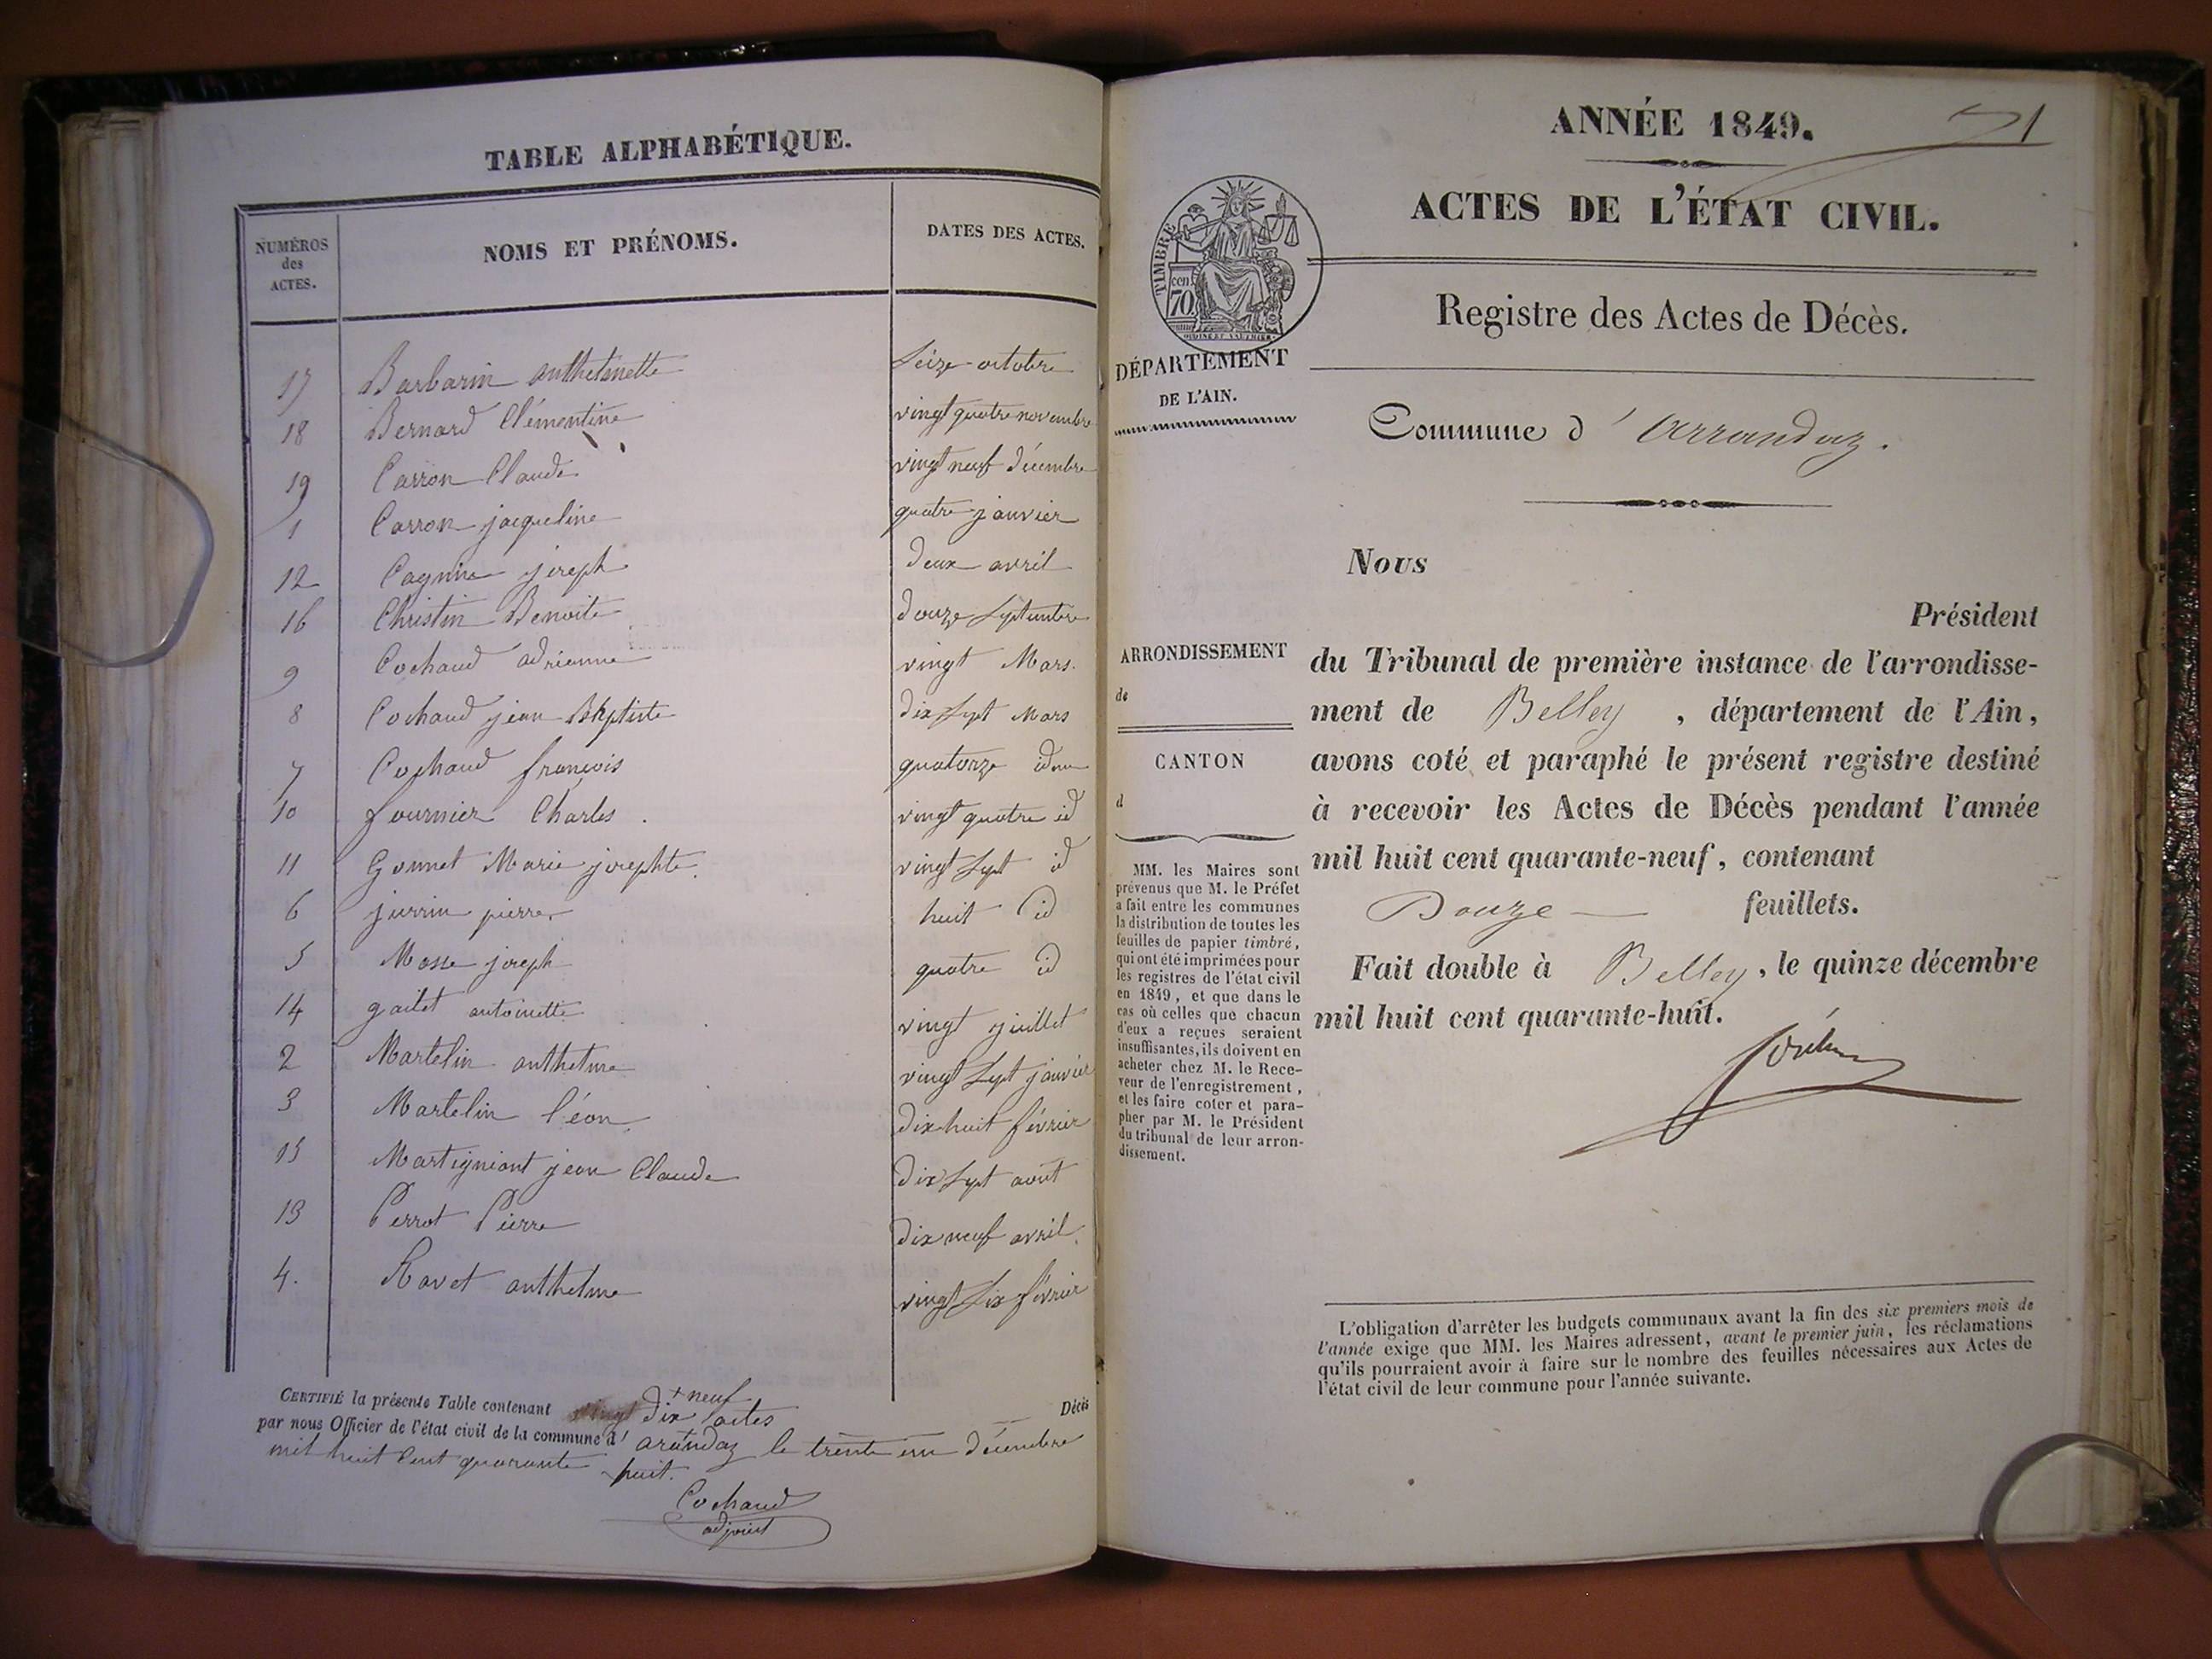 TABLE ALPHABÉTIQUE.
NUMÉROS des ACTES. NOMS ET PRÉNOMS. DATES DES ACTES.
17 Barbarin anthelmette Seize octobre
18 Bernard Clémentine vingt quatre novembre
19 Carron Claude vingt neuf décembre
1 Carron jacqueline quatre janvier
12 joseph deux avril
16 Christin Benoite douze Septembre
9 Cochaud adrienne vingt Mars.
8 Cochaud jean Baptiste dix Sept Mars
7 Cochaud françois quatorze idem
10 fournier Charles. vingt quatre id
11 Gonnet Marie josephte. vingt Sept id
6 juvrin pierre huit id
5 Masse joseph quatre id
14 gailet antoinette vingt juillet
2 Martelin anthelme vingt Sept janvier
3 Martelin Léon dix huit février
15 Martigniont jean Claude dix Sept août
13 Perrot Pierre dix neuf avril.
4. Ravet anthelme vingt Six février
CERTIFIÉ la présente Table contenant dix neuf actes Décès
par nous Officier de l'état civil de la commune d' arandaz le trente un décembre
mil huit Cent quarante huit.
Cochaud
adjoint
ANNÉE 1849.
71
ACTES DE L'ÉTAT CIVIL.
TIMBRE
70 cen
Registre des Actes de Décès.
DÉPARTEMENT
DE L'AIN.
Commune d' arrandaz.
Nous
Président
ARRONDISSEMENT
de
CANTON
d
du Tribunal de première instance de l'arrondisse-
ment de Belley, département de l'Ain,
avons coté et paraphé le présent registre destiné
à recevoir les Actes de Décès pendant l'année
mil huit cent quarante-neuf, contenant
Douze feuillets.
Fait double à Belley, le quinze décembre
mil huit cent quarante-huit.
MM. les Maires sont
prévenus que M. le Préfet
a fait entre les communes
la distribution de toutes les
feuilles de papier timbré,
qui ont été imprimées pour
les registres de l'état civil
en 1849, et que dans le
cas où celles que chacun
d'eux a reçues seraient
insuffisantes, ils doivent en
acheter chez M. le Rece-
veur de l'enregistrement,
et les faire coter et para-
pher par M. le Président
du tribunal de leur arron-
dissement.
L'obligation d'arrêter les budgets communaux avant la fin des six premiers mois de
l'année exige que MM. les Maires adressent, avant le premier juin, les réclamations
qu'ils pourraient avoir à faire sur le nombre des feuilles nécessaires aux Actes de
l'état civil de leur commune pour l'année suivante.